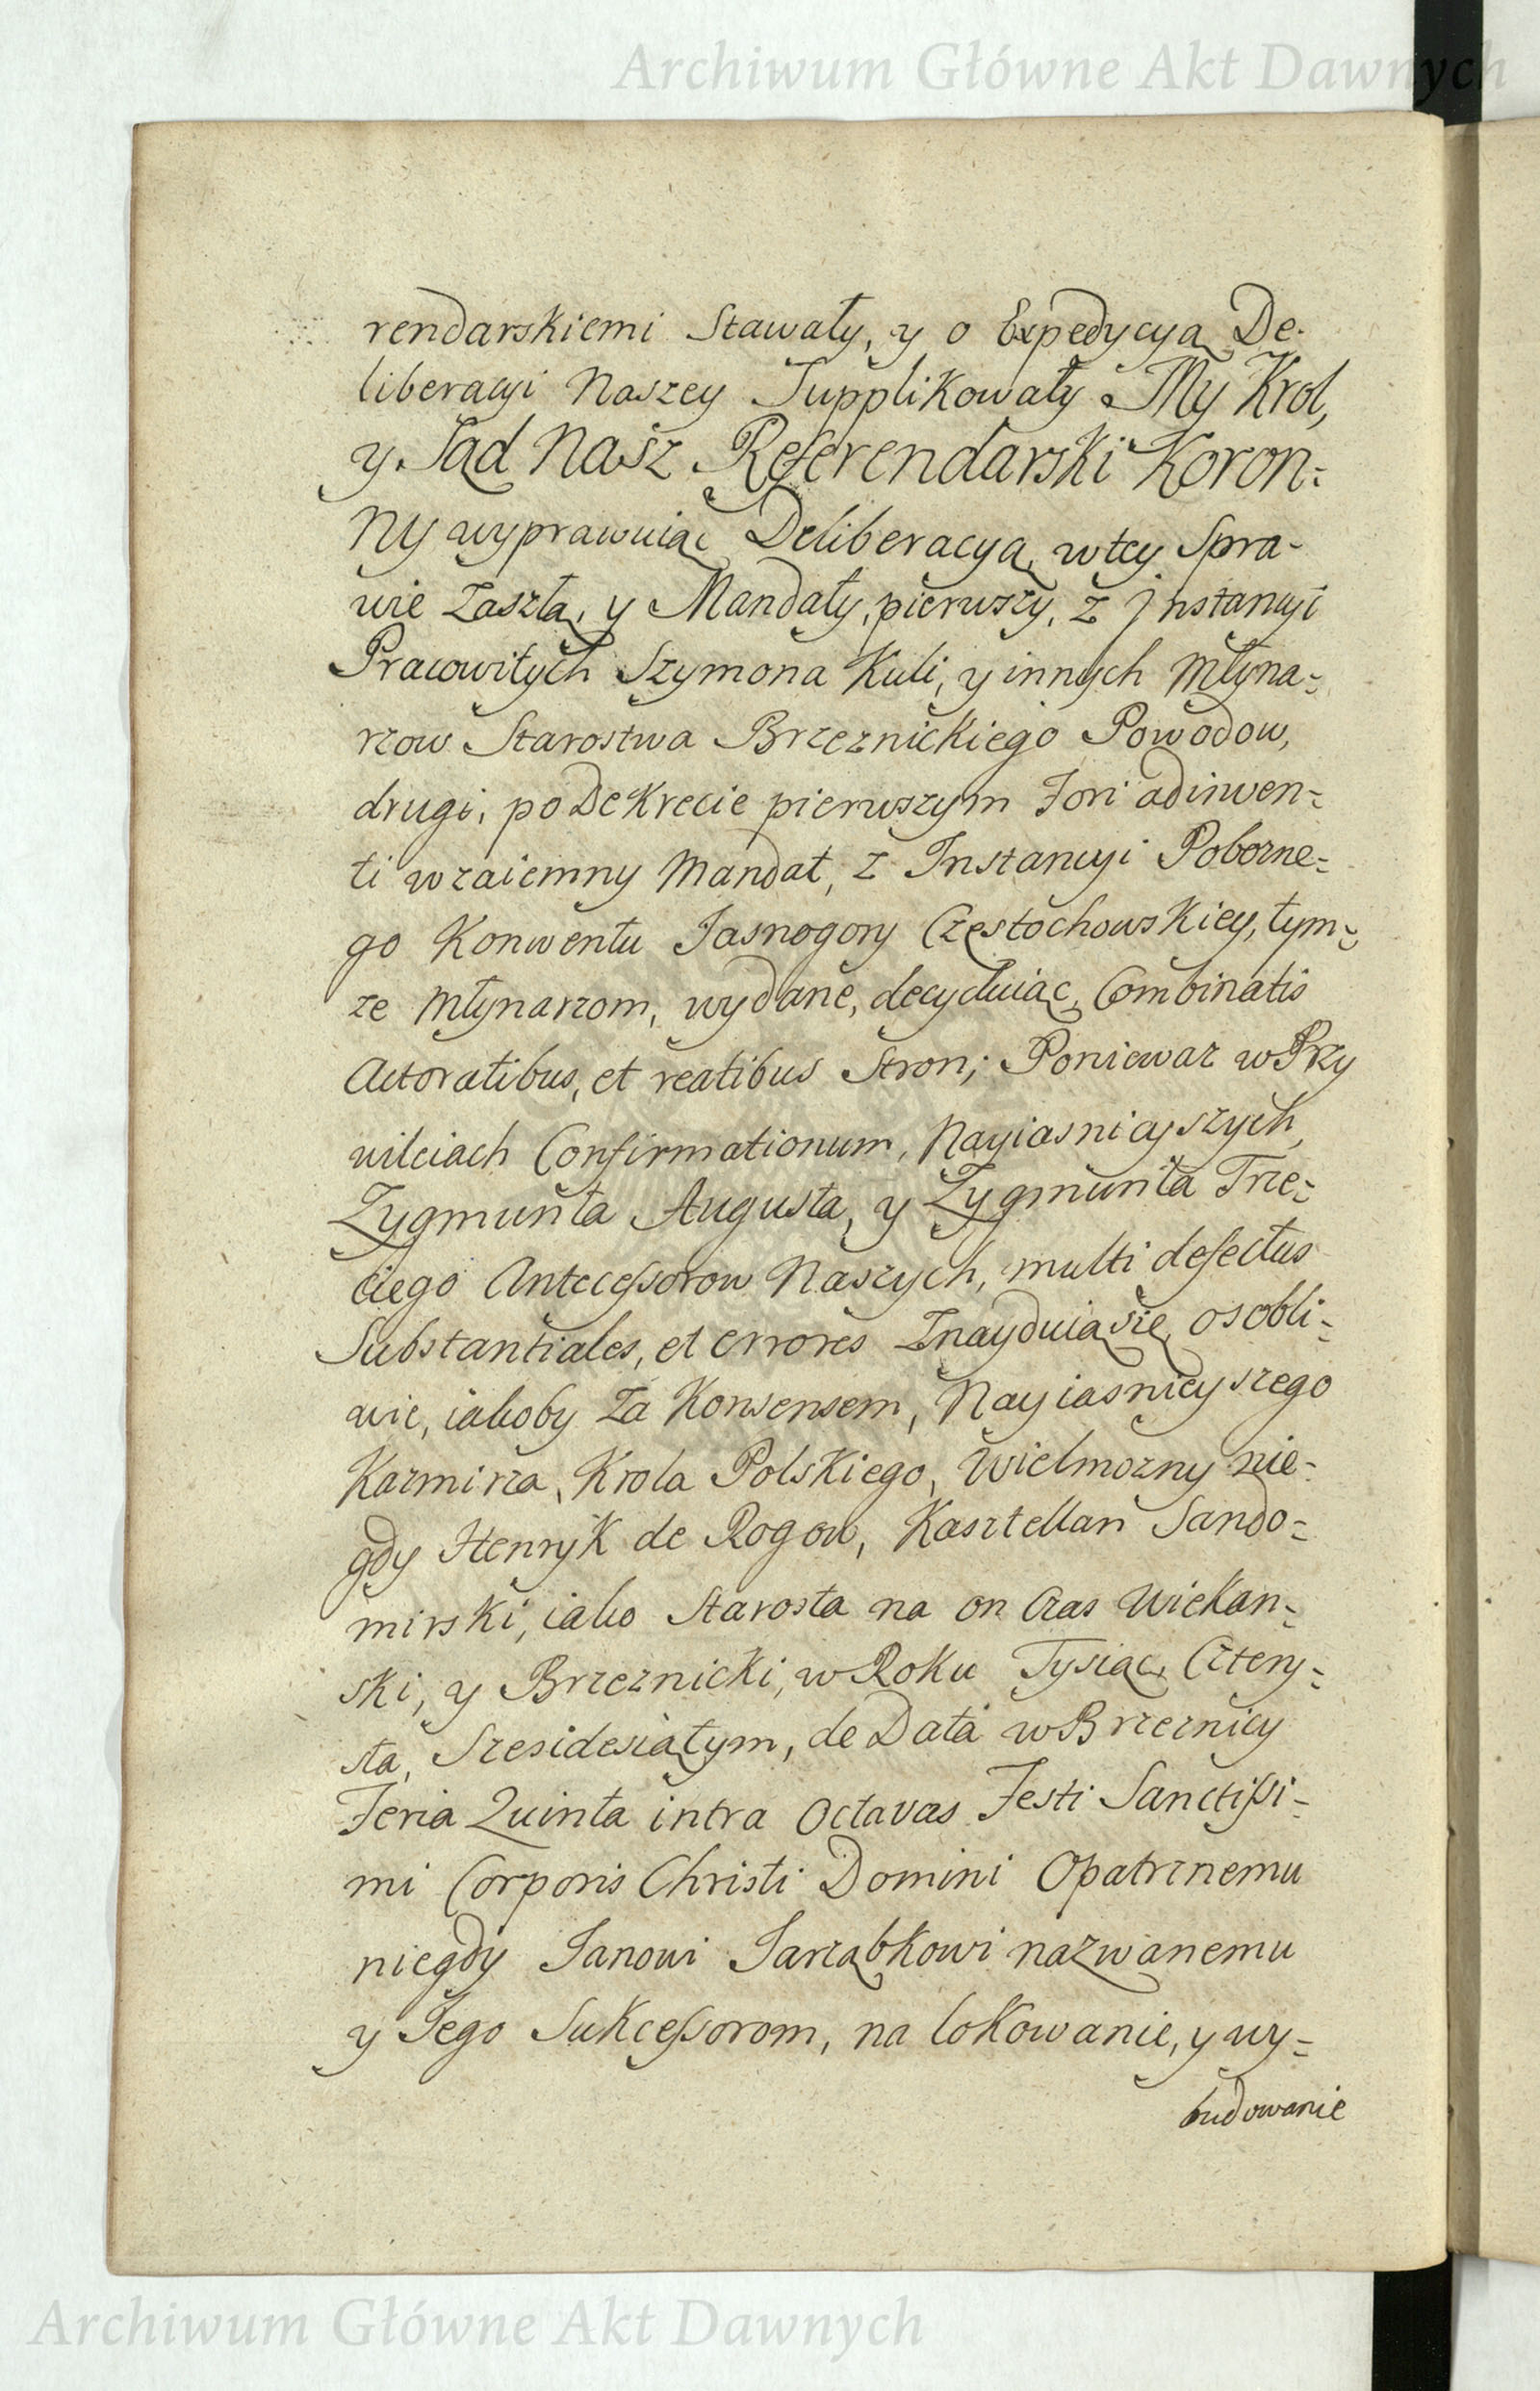 Archiwum Główne Akt Dawnych
rendarskiemi Stawały, y o Expedycyą De-
liberacyi Naszey Supplikowały My Krol,
y Sąd Nasz Referendarski Koron=
ny wyprawuiąc Deliberacyą wtey Spra-
wie Zaszłą, y Mandaty, pierwszy, z Jnstancyi
Pracowitych Szymona Kuli, y innych Młyna=
rzow Starostwa Brzeznickiego Powodow,
drugi, po Dekrecie pierwszym Fori adinven=
ti wzaiemny Mandat, z Instancyi Poborne=
go Konwentu Jasnogory Częstochowskiey, tym=
ze Młynarzom, wydane, decyduiąc, Combinatis
Actoratibus, et reatibus Stron; Poniewaz w Przy
wileiach Confirmationum, Nayiasnieyszych,
Zygmunta Augusta, y Zygmunta Trze=
ciego Antecessorow Naszych, multi defectus
Substantiales, et errores Znayduią się, osobli=
wie, iakoby Za Konsensem, Nayiasnieyszego
Kazmirza, Krola Polskiego, Wielmozny nie=
gdy Henryk de Rogow, Kasztellan Sando=
mirski, iako Starosta na on Czas Wiekan=
ski, y Brzeznicki, w Roku Tysiąc, Cztery=
sta, Szescidesiątym, de Data w Brzeznicy
Feria Quinta intra Octavas Festi Sanctissi=
mi Corporis Christi Domini Opatrznemu
niegdy Janowi Jarząbkowi nazwanemu
y Jego Sukcessorom, na lokowanie, y wy=
budowanie
Archiwum Główne Akt Dawnych